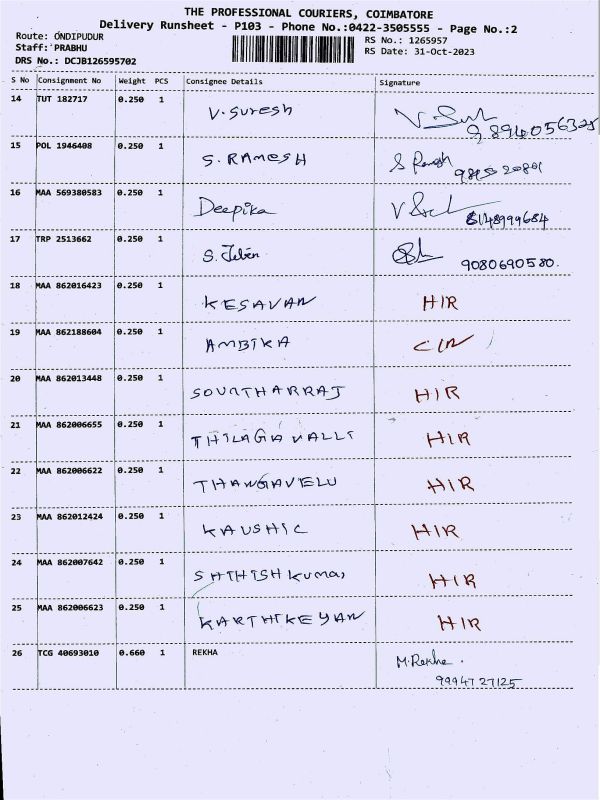 THE PROFESSIONAL COURIERS, COIMBATORE
Delivery Runsheet - P103 - Phone No.:0422-3505555 - Page No.:2
Route: ONDIPUDUR
RS No.: 1265957
Staff: PRABHU
RS Date: 31-Oct-2023
DRS No.: DCJB126595702
S No Consignment No Weight PCS Consignee Details Signature
14 TUT 182717 0.250 1 V. Suresh
15 POL 1946408 0.250 1 S. RAMESH
16 MAA 569380583 0.250 1 Deepika 8148999684
17 TRP 2513662 0.250 1 S. Jeben 9080690580.
18 MAA 862016423 0.250 1 KESAVAN HIR
19 MAA 862188604 0.250 1 AMBIKA
20 MAA 862013448 0.250 1 SOUNTHARRAJ HIR
21 MAA 862006655 0.250 1 THILAGAVALLI HIR
22 MAA 862006622 0.250 1 THANGAVELU HIR
23 MAA 862012424 0.250 1 KAUSHIC HIR
24 MAA 862007642 0.250 1 SHTHISH kumar HIR
25 MAA 862006623 0.250 1 KARTHIKEYAN HIR
26 TCG 40693010 0.660 1 REKHA M. Rekha.
9994727125